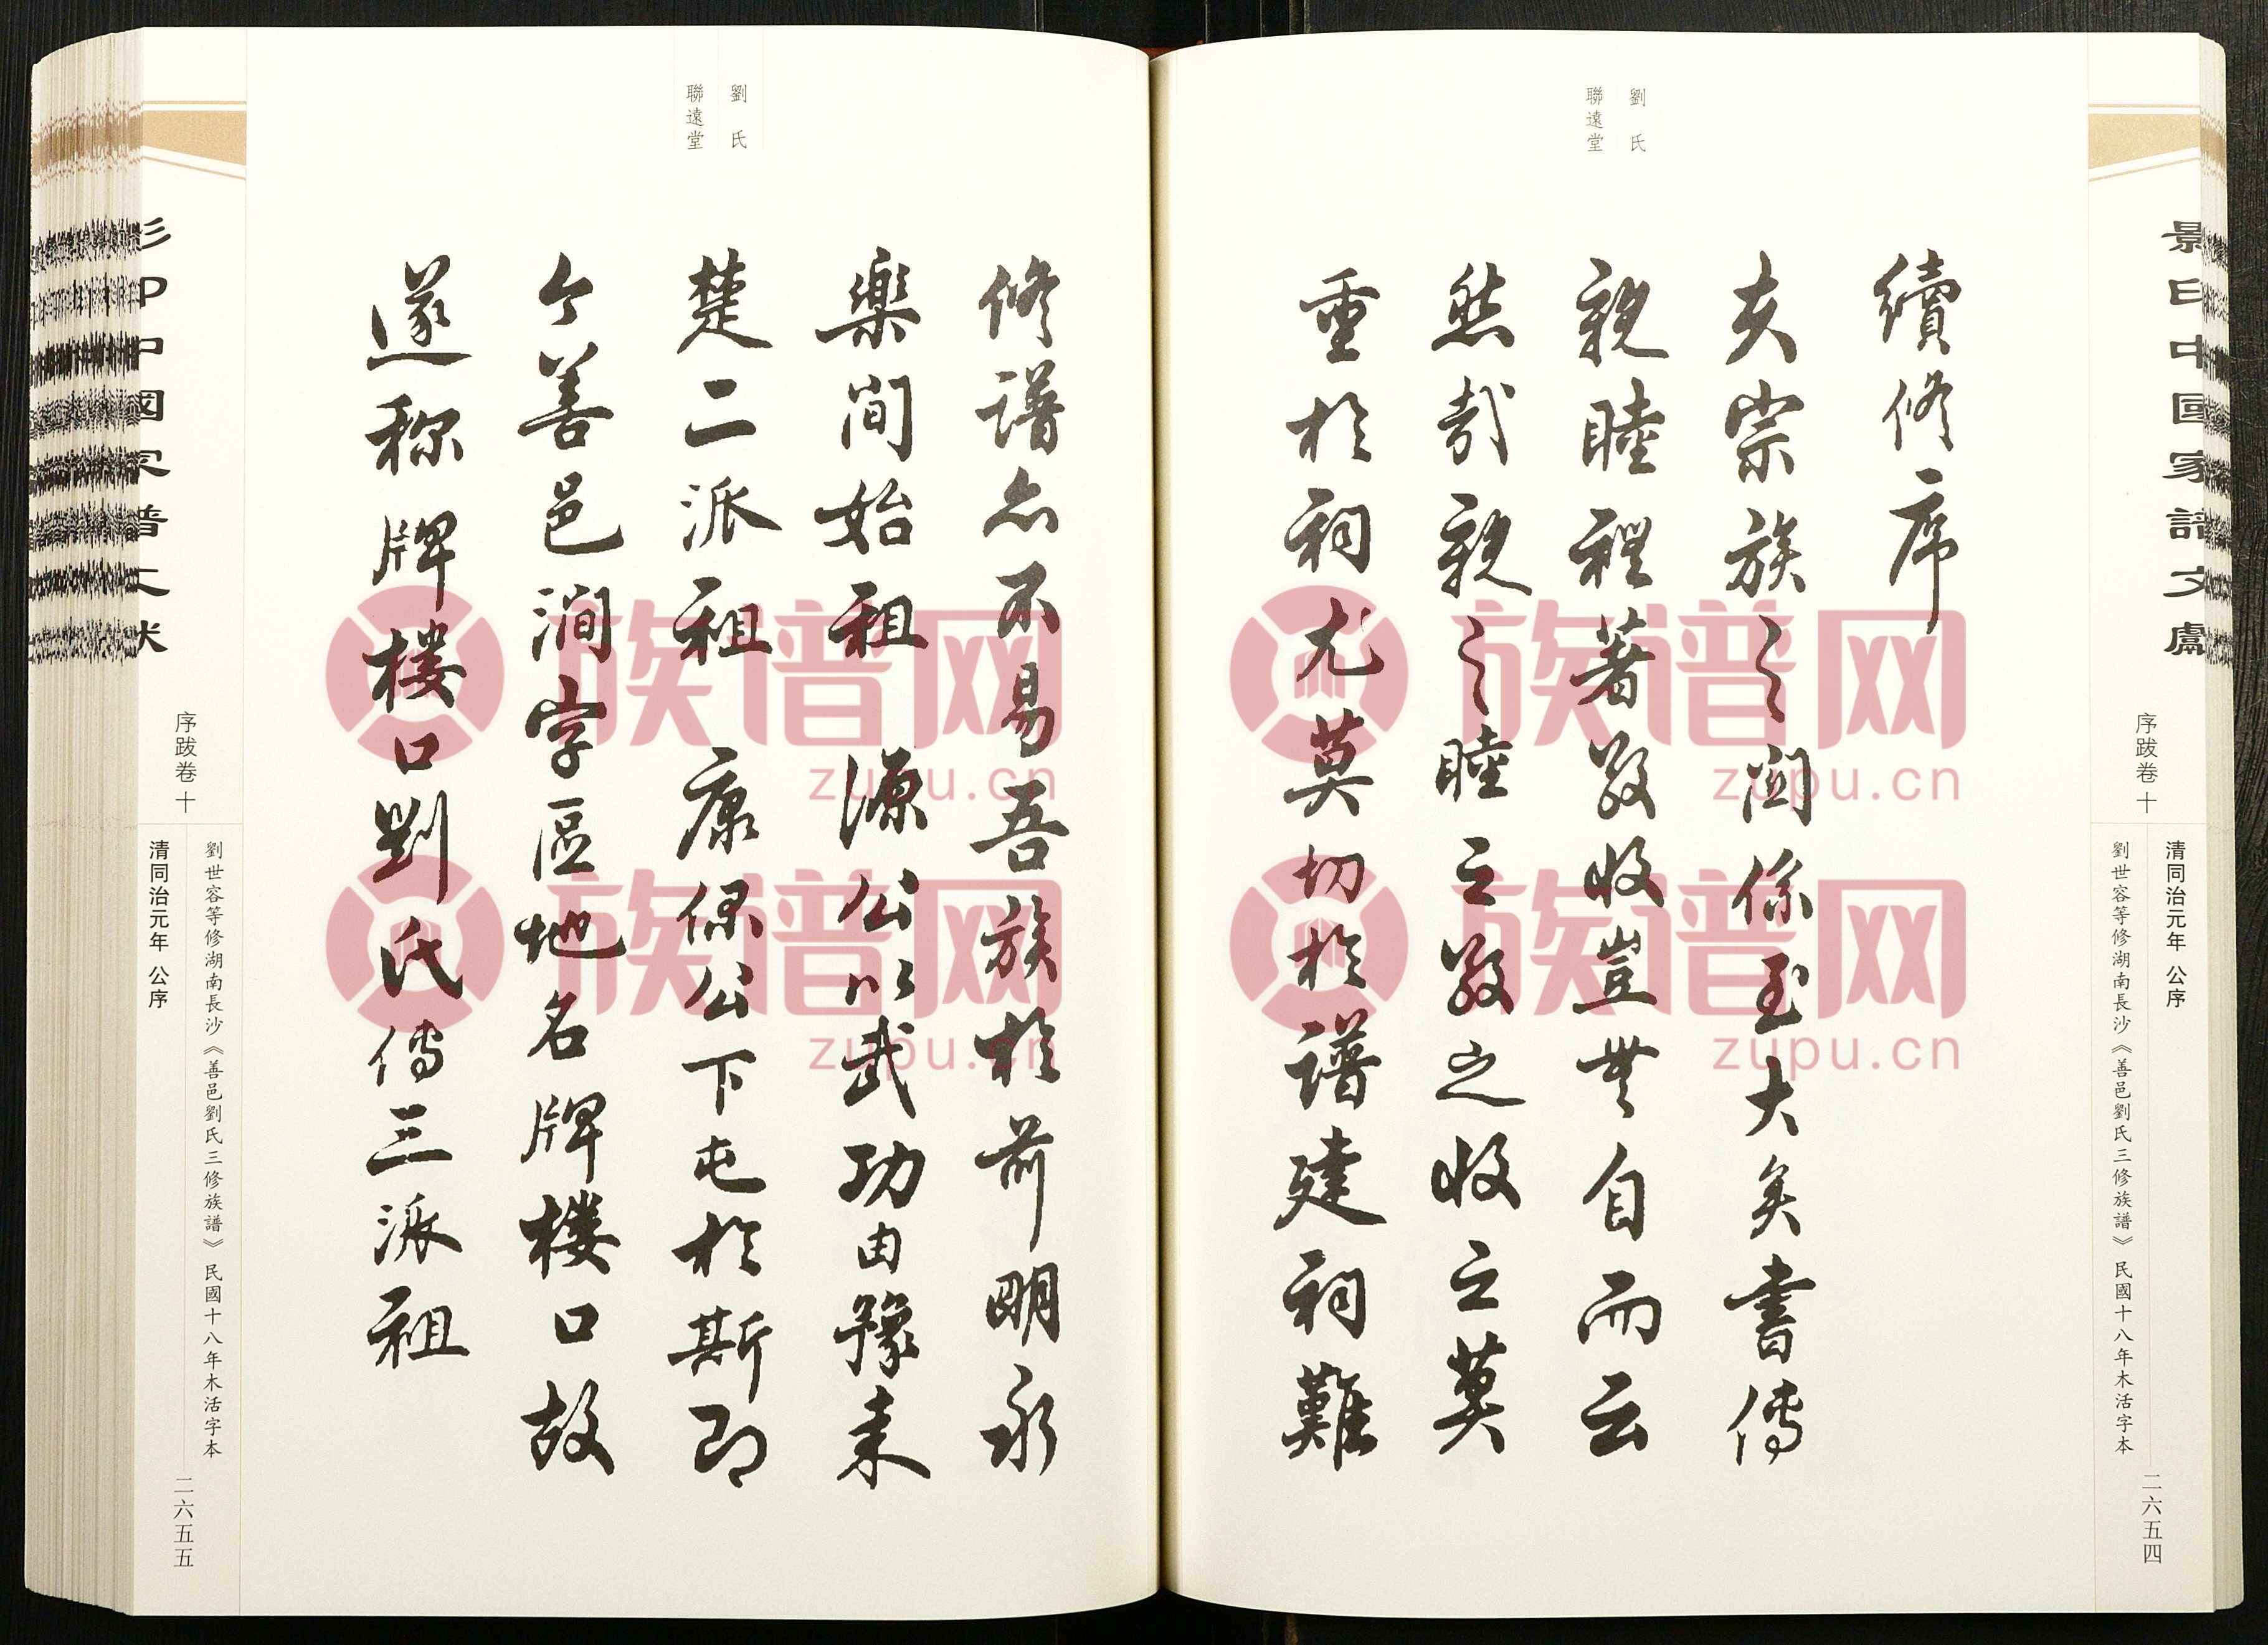 景印中國家譜文獻
序跋卷十
清同治元年 公序
劉世容等修湖南長沙《善邑劉氏三修族譜》民國十八年木活字本
二六五四
劉氏
聯遠堂
續修序
夫宗族之関係至大矣書傳
親睦禮著敬收豈無自而云
然哉親之睦之敬之收之莫
重於祠尤莫切於譜建祠難
劉氏
聯遠堂
修譜亦不易吾族於前明永
樂間始祖 源公以武功由豫来
楚二派祖 康保公下屯於斯即
今善邑澗字區地名牌樓口故
遂称牌樓口劉氏傳三派祖
劉世容等修湖南長沙《善邑劉氏三修族譜》民國十八年木活字本
序跋卷十
清同治元年 公序
二六五五
影印中國家譜文獻
族谱网
zupu.cn
族谱网
zupu.cn
族谱网
zupu.cn
族谱网
zupu.cn